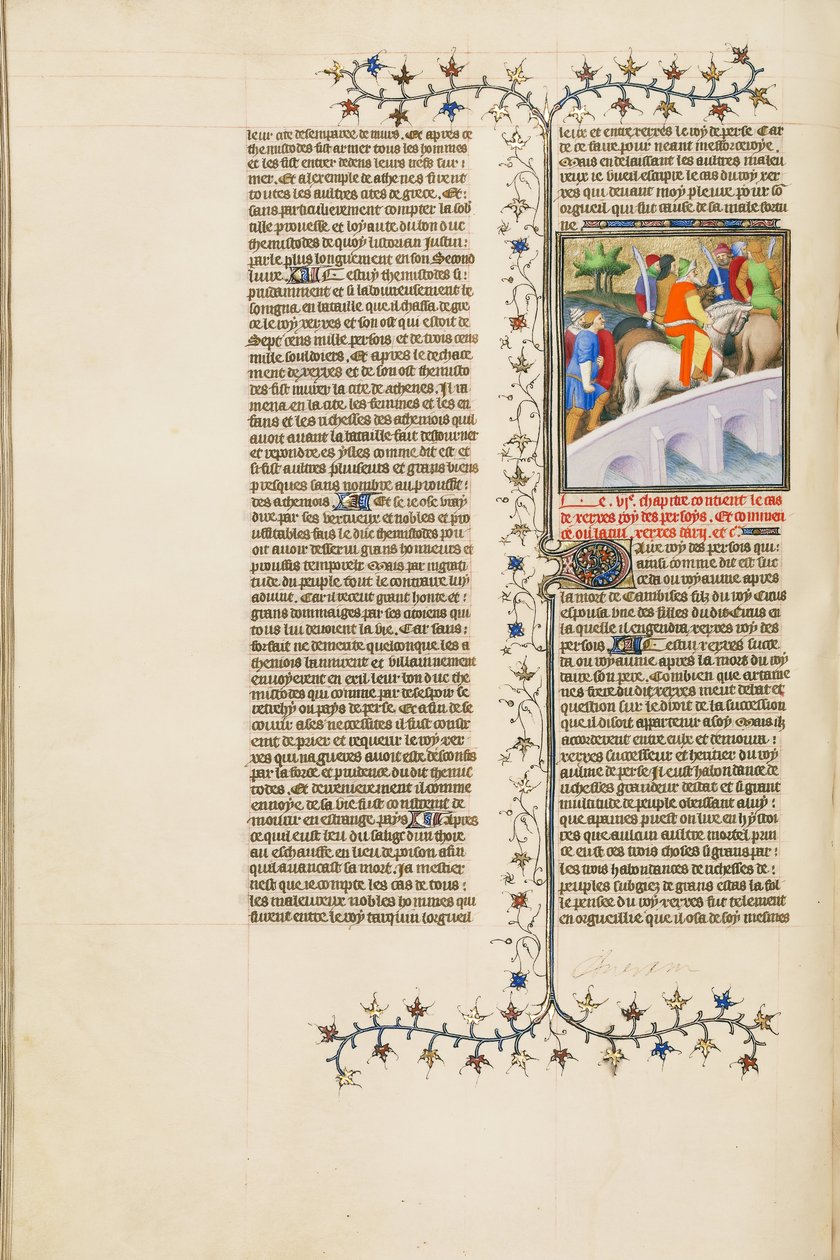 leur cite desemparee de murs. Et apres ce
themistodes fist armer tous les hommes
et les fist entrer dedens leurs nefs sur :
mer. Et a lexemple de athenes firent
toutes les aultres cites de grece. Et :
sans particulierement compter la sob
tille prouesse et loyaute du bon duc
themistodes de quoy listorian Justin :
parle plus longuement en son Second
livre. Cestuy themistodes si :
prudamment et si laboureusement be
songna en bataille que il chassa de gre
ce le roy xerxes et son ost qui estoit de
Sept cens mille persois et de trois cens
mille souldoiers. Et apres le dechace
ment de xerxes et de son ost themisto
des fist murer la cite de athenes. Il ra
mena en la cite les femmes et les en
fans et les richesses des atheniois quil
avoit avant la bataille fait destourner
et repondre es ysles comme dit est et
si fist aultres pluseurs et grans biens
presques sans nombre au prouffit :
des atheniois. Et se ie ose vray
dire par ses vertueux et nobles et pro
uffitables fais le duc themistodes pou
oit avoir desservi grans honneurs et
prouffis temporelz Mais par ingrati
tude du peuple tout le contraire luy
advint. Car il receut grant honte et :
grans dommaiges par ses citoiens qui
tous lui devoient la vie. Car sans :
forfait ne demerite quelconque les a
theniois lanmirent et villainnement
envoyerent en exil leur bon duc the
mistodes qui comme par desespoir se
retrehy ou pays de perse. Et afin de se
courir a ses necessites il fust contr
eint de prier et requerir le roy xer
xes qui nagueres avoit este desconfis
par la force et prudence du dit themis
todes. Et derrenierement il comme
ennoye de sa vie fust constreint de
mourir en estrange pays Apres
ce quil eust beu du sang dun thore
au eschauffe en lieu de poison afin
quil avancast sa mort. Ja mestier
nest que ie compte les cas de tous :
les maleureux nobles hommes qui
furent entre le roy tarquin lorgueil
leux et entre xerxes le roy de perse Car
de ce faire pour neant mefforceroye.
Mais en delaissant les aultres maleu
reux ie vueil escripre le cas du roy xer
xes qui devant moy pleure pour so
orgueil qui fut cause de sa male fortu
ne
Le. VIe. chapitre contient le cas
de xerxes roy des persoys. Et commen
ce ou latin xerxes darij. et c.
Daire roy des persois qui :
ainsi comme dit est suc
ceda ou royaume apres
la mort de Cambises filz du roy Cirus
espousa une des filles du dit Cirus en
la quelle il engendra xerxes roy des
persois Cestui xerxes succe
da ou royaume apres la mort du roy
daire son pere. Combien que artame
nes frere du dit xerxes meut debat et
question sur le droit de la succession
que il disoit appartenir a soy Mais ilz
accorderent entre eulx et demoura :
xerxes successeur et heritier du roy
aulme de perse Il eust habondance de
richesses grandeur destat et si grant
multitude de peuple obeissant a luy :
que apaines puest on lire en hystoi
res que aulcun aultre mortel prin
ce eust ces trois choses si grans par :
les trois habondances de richesses de :
peuples subgiez de grans estas la fol
le pensee du roy xerxes fut telement
en orgueillie que il osa de soy mesmes